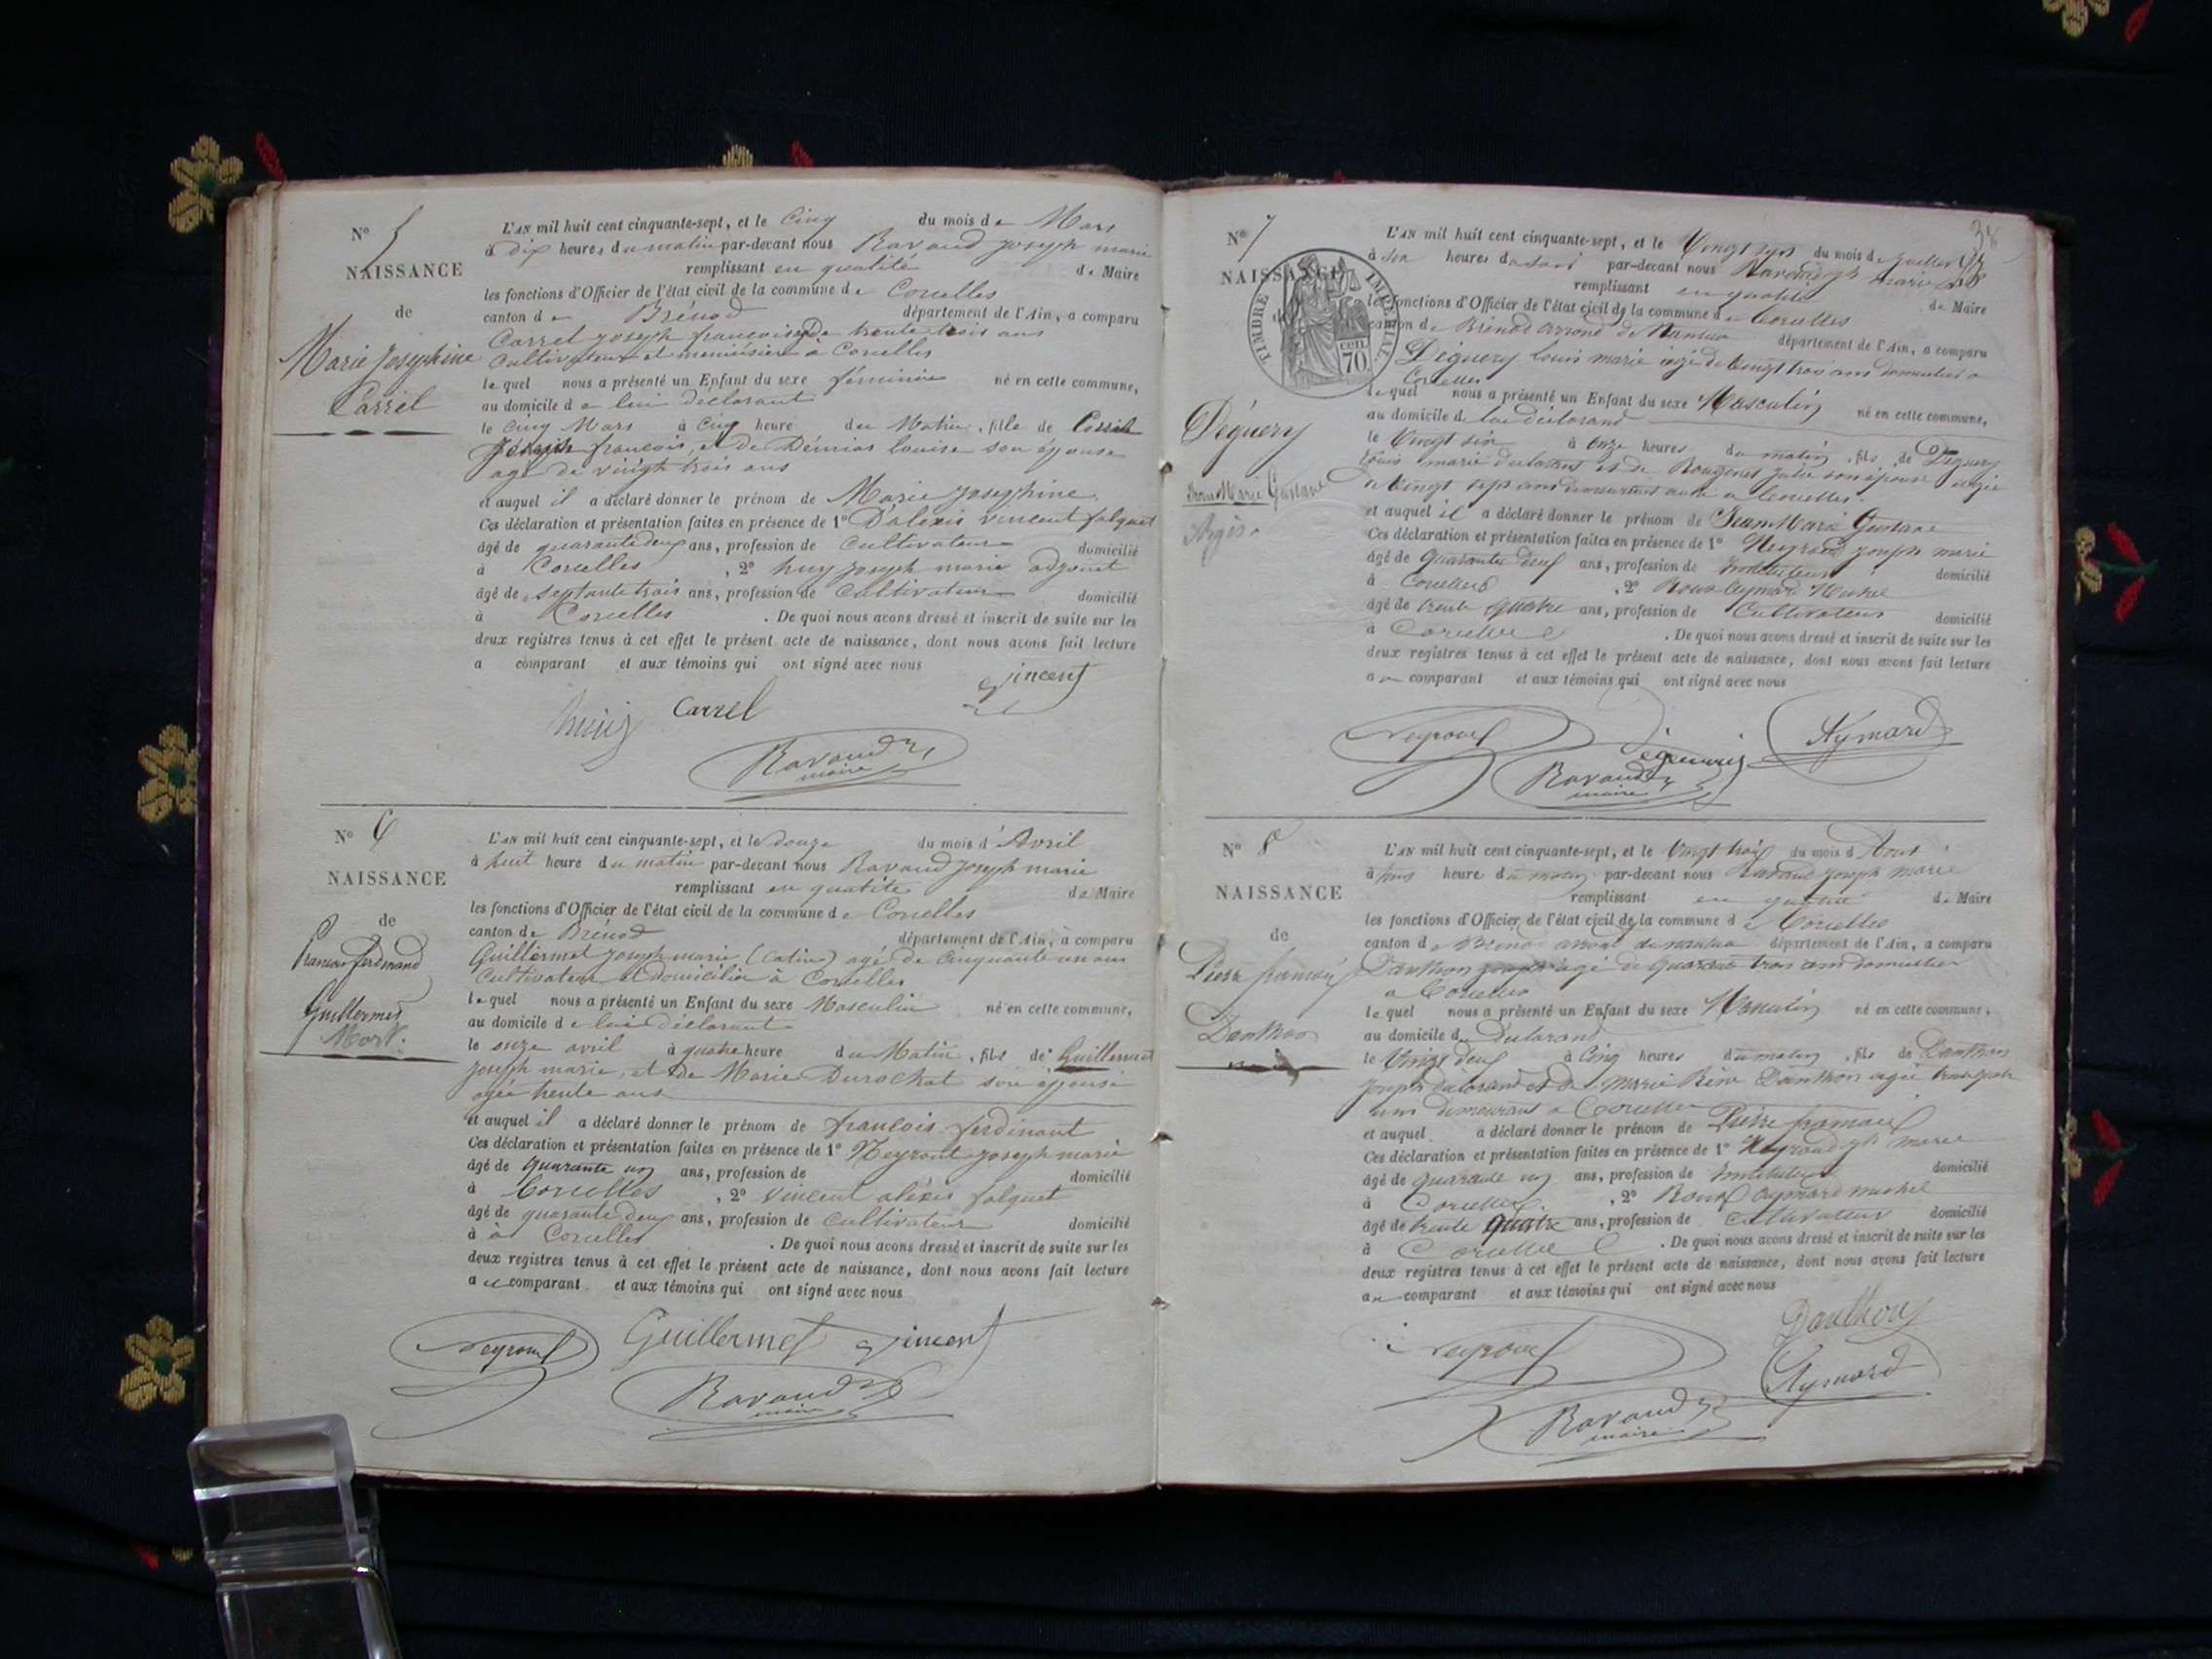 N° 5
NAISSANCE
de
Marie Josephine
Carrel
L'AN mil huit cent cinquante-sept, et le Cinq du mois de Mars
à dix heures du matin par-devant nous Ravaud joseph marie
remplissant en qualité de Maire
les fonctions d'Officier de l'état civil de la commune de Corcelles
canton de Brénod département de l'Ain, a comparu
Carrel joseph françois agé de trente trois ans
Cultivateur et menuisier à Corcelles
lequel nous a présenté un Enfant du sexe féminin né en cette commune,
au domicile de lui déclarant
le cinq Mars à cinq heure du Matin, fille de Carrel
Joseph françois, et de Démias louise son épouse
agé de vingt trois ans
et auquel il a déclaré donner le prénom de Marie Josephine.
Ces déclaration et présentation faites en présence de 1° D'alexis vincent falquet
âgé de quarante deux ans, profession de Cultivateur domicilié
à Corcelles, 2° huy joseph marie adjoint
âgé de septante trois ans, profession de Cultivateur domicilié
à Corcelles. De quoi nous avons dressé et inscrit de suite sur les
deux registres tenus à cet effet le présent acte de naissance, dont nous avons fait lecture
a comparant et aux témoins qui ont signé avec nous
Vincent
Carrel
Ravaud
maire
N° 6
NAISSANCE
de
francois ferdinand
Guillermet
Mort.
L'AN mil huit cent cinquante-sept, et le douze du mois d'Avril
à huit heure du matin par-devant nous Ravaud Joseph marie
remplissant en qualité de Maire
les fonctions d'Officier de l'état civil de la commune de Corcelles
canton de Brénod département de l'Ain, a comparu
Guillermet Joseph marie (Catin) agé de Cinquante un ans
Cultivateur et domicilié à Corcelles
lequel nous a présenté un Enfant du sexe Masculin né en cette commune,
au domicile de lui déclarant
le onze avril à quatre heure du Matin, fils de Guillermet
Joseph marie, et de Marie Durochat son épouse
agée trente ans
et auquel il a déclaré donner le prénom de françois ferdinant
Ces déclaration et présentation faites en présence de 1° Neyroud Joseph marie
âgé de quarante un ans, profession de domicilié
à Corcelles, 2° vincent aléxis falquet
âgé de quarante deux ans, profession de cultivateur domicilié
à à Corcelles. De quoi nous avons dressé et inscrit de suite sur les
deux registres tenus à cet effet le présent acte de naissance, dont nous avons fait lecture
au comparant et aux témoins qui ont signé avec nous
Neyroud Guillermet Vincent
Ravaud
maire
38
N° 7
NAISSANCE
TIMBRE IMPÉRIAL
70 cen
Déguery
Jean Marie Gustave
L'AN mil huit cent cinquante-sept, et le Vingt sept du mois de Juillet
à heures du par-devant nous Ravaud Jph Marie
remplissant en qualité de Maire
les fonctions d'Officier de l'état civil de la commune de Corcelles
canton de Brénod arrond de Nantua département de l'Ain, a comparu
Déguery Louis marie agé de Vingt trois ans domicilié a
Corcelles
lequel nous a présenté un Enfant du sexe Masculin né en cette commune,
au domicile de lui déclarand
le Vingt six à onze heures du matin, fils de Déguery
Louis marie déclarant et de Julie son épouse agée
de Vingt sept ans demeurant a Corcelles.
et auquel il a déclaré donner le prénom de Jean Marie Gustave
Ces déclaration et présentation faites en présence de 1° Neyroud Joseph marie
âgé de Quarante deux ans, profession de instituteur domicilié
à Corcelles, 2° Roux Aymard Michel
âgé de trente quatre ans, profession de Cultivateur domicilié
à Corcelles. De quoi nous avons dressé et inscrit de suite sur les
deux registres tenus à cet effet le présent acte de naissance, dont nous avons fait lecture
au comparant et aux témoins qui ont signé avec nous
Neyroud Aymard
Ravaud
maire
N° 8
NAISSANCE
de
Pierre françois
Danthon
L'AN mil huit cent cinquante-sept, et le Vingt trois du mois d'Aout
à heure du matin par-devant nous Ravaud Joseph marie
remplissant en qualité de Maire
les fonctions d'Officier de l'état civil de la commune de Corcelles
canton de Brénod arrond de nantua département de l'Ain, a comparu
Danthon Joseph agé de quarante trois ans domicilié
a Corcelles
lequel nous a présenté un Enfant du sexe Masculin né en cette commune,
au domicile du Déclarand
le Vingt deux à Cinq heures du matin, fils de Danthon
Joseph déclarand et de Marie Danthon agée
ans demeurant a Corcelles
et auquel a déclaré donner le prénom de Pierre françois
Ces déclaration et présentation faites en présence de 1° Neyroud jph marie
âgé de quarante un ans, profession de instituteur domicilié
à Corcelles, 2° Roux Aymard michel
âgé de trente quatre ans, profession de cultivateur domicilié
à Corcelles. De quoi nous avons dressé et inscrit de suite sur les
deux registres tenus à cet effet le présent acte de naissance, dont nous avons fait lecture
au comparant et aux témoins qui ont signé avec nous
Danthon
Neyroud
Aymard
Ravaud
maire